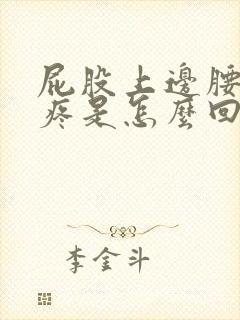 屁股上邊腰
疼是怎麼回
李金斗